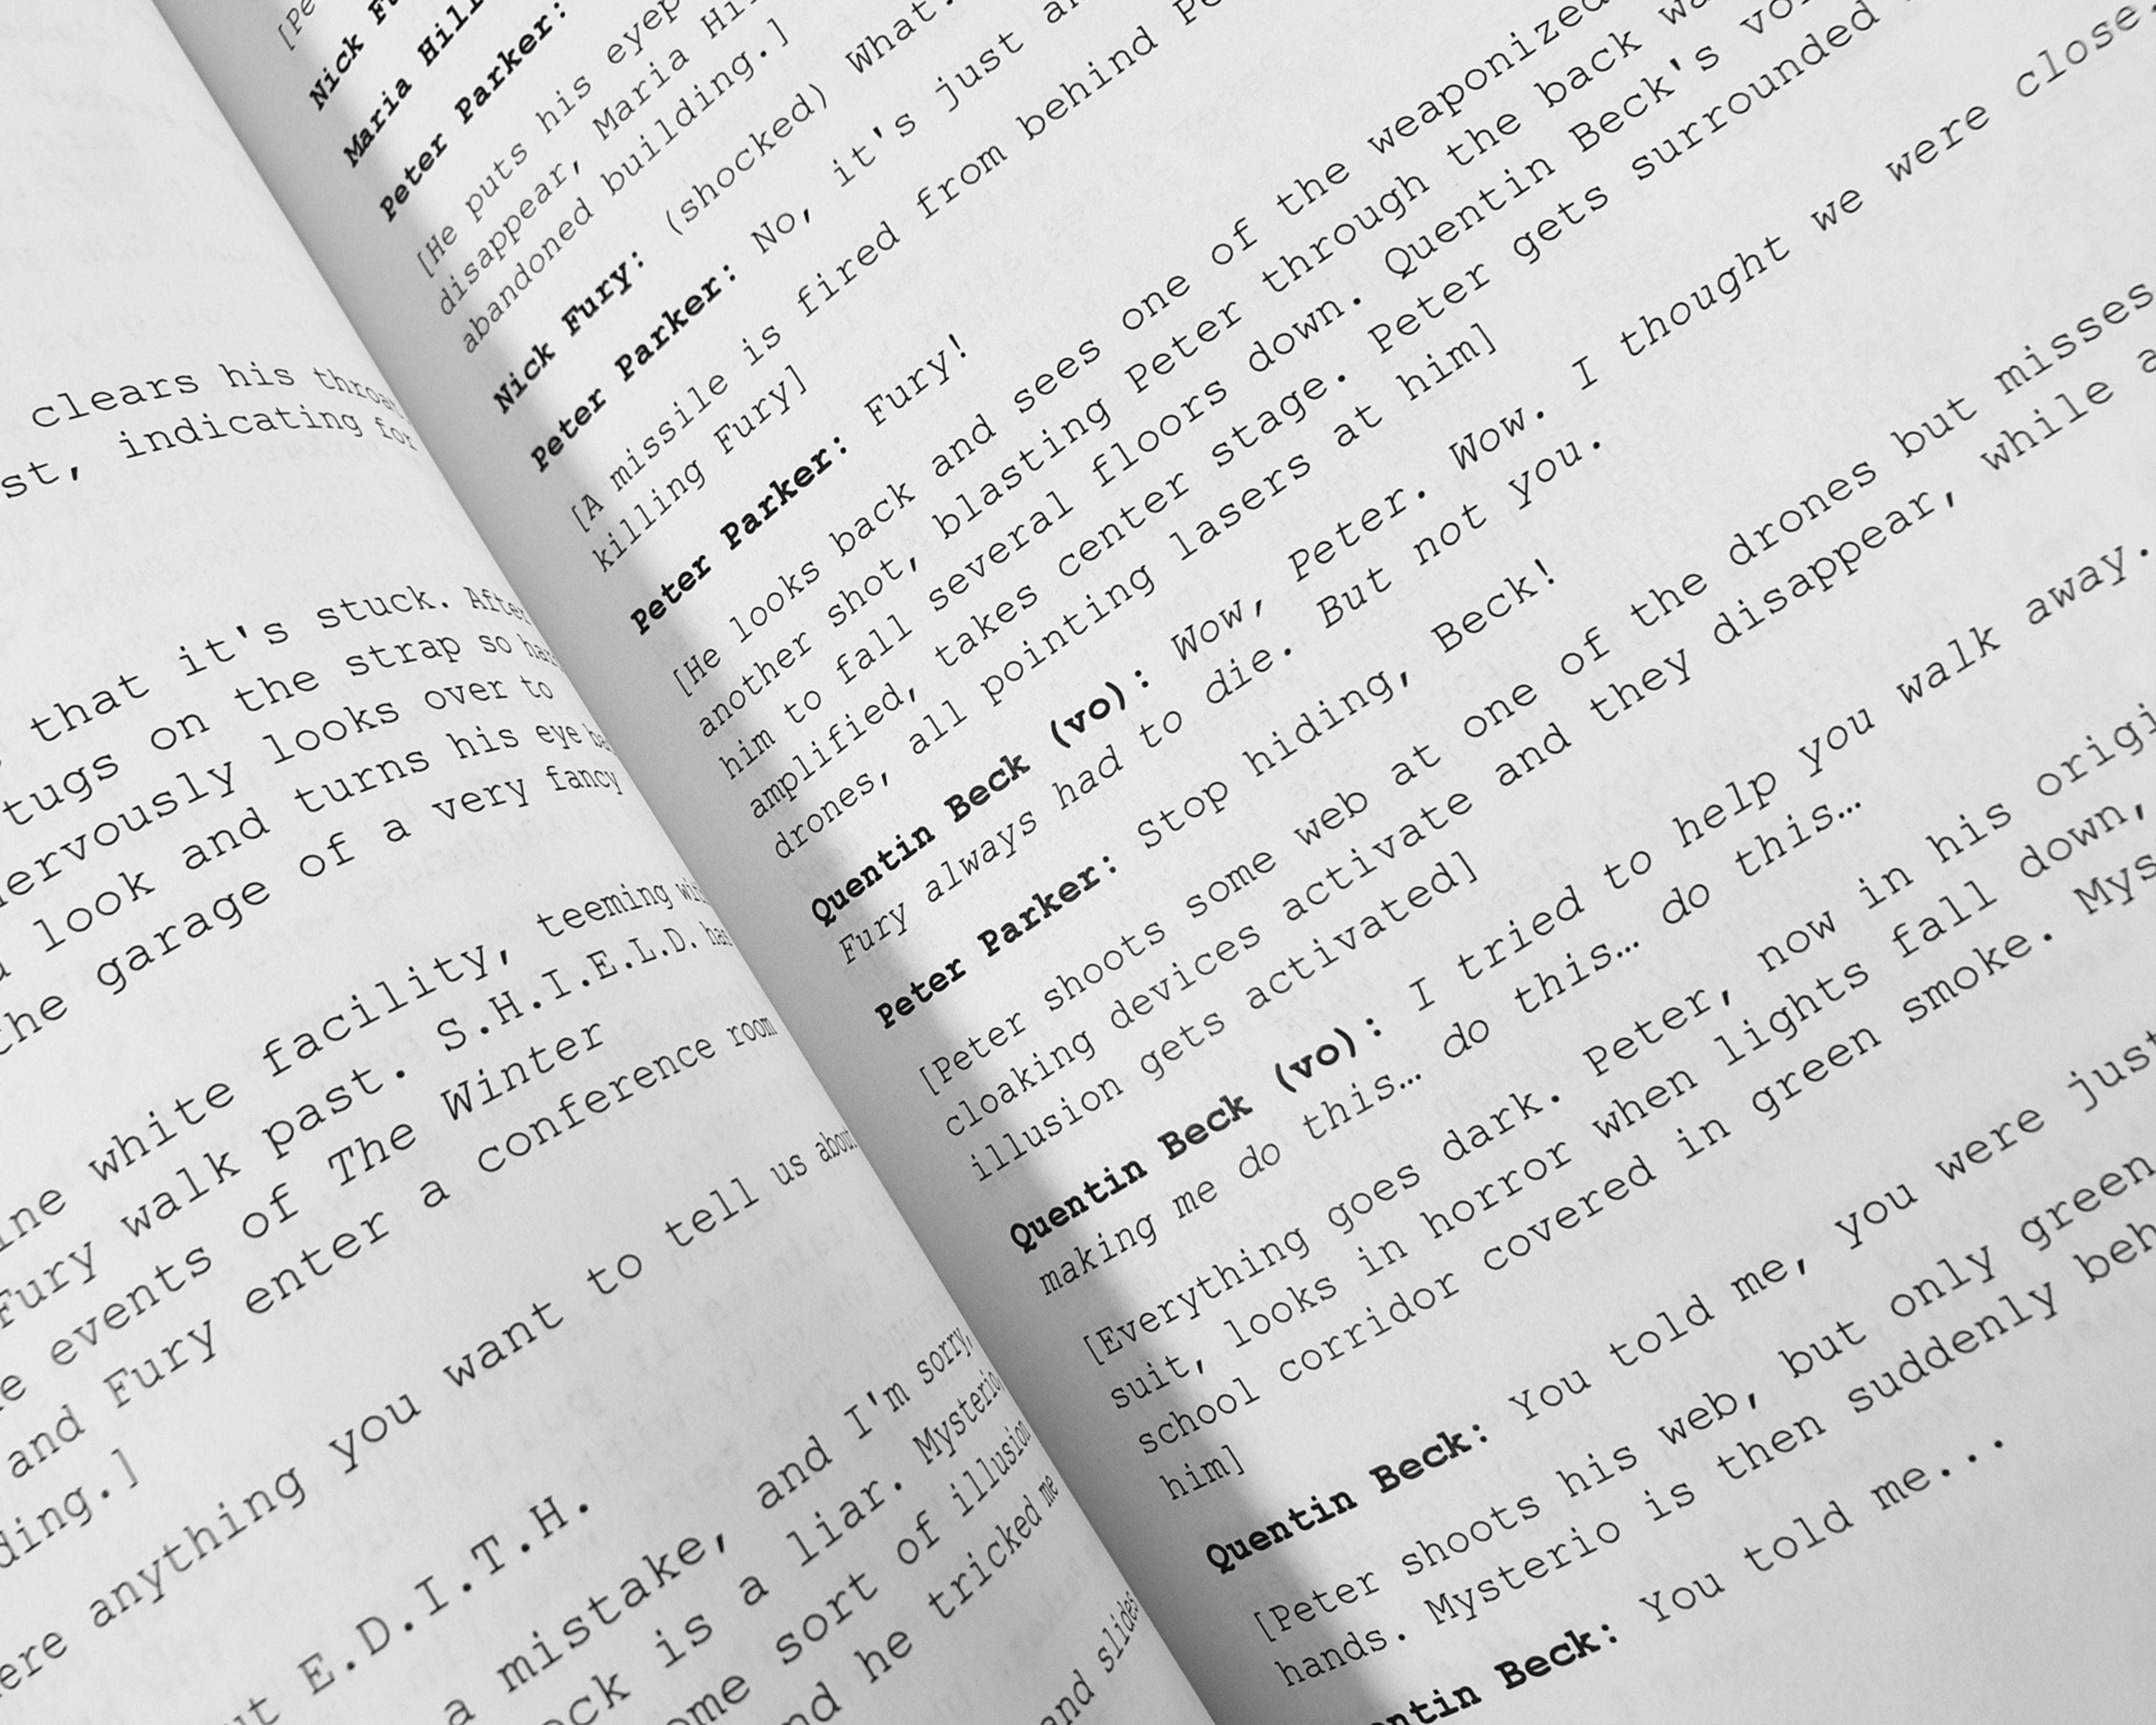 clears his throat
st, indicating for
that it's stuck. After
tugs on the strap so
nervously looks over to
look and turns his eye
the garage of a very fancy
white facility, teeming
Fury walk past. S.H.I.E.L.D.
events of The Winter
and Fury enter a conference room
ding.]
anything you want to tell us about
E.D.I.T.H.
a mistake, and I'm sorry,
is a liar. Mysterio
sort of illusion
he tricked me
and slides
Nick
Maria Hill
Peter Parker:
[He puts his
disappear, Maria
abandoned building.]
Nick Fury: (shocked) What
Peter Parker: No, it's just
[A missile is fired from behind
killing Fury]
Peter Parker: Fury!
[He looks back and sees one of the weaponized
another shot, blasting Peter through the back
him to fall several floors down. Quentin Beck's
amplified, takes center stage. Peter gets surrounded
drones, all pointing lasers at him]
Quentin Beck (vo): Wow, Peter. Wow. I thought we were close.
Fury always had to die. But not you.
Peter Parker: Stop hiding, Beck!
[Peter shoots some web at one of the drones but misses
cloaking devices activate and they disappear, while
illusion gets activated]
Quentin Beck (vo): I tried to help you walk away.
making me do this… do this… do this…
[Everything goes dark. Peter, now in his
suit, looks in horror when lights fall down,
school corridor covered in green smoke.
him]
Quentin Beck: You told me, you were just
[Peter shoots his web, but only green
hands. Mysterio is then suddenly
Beck: You told me...